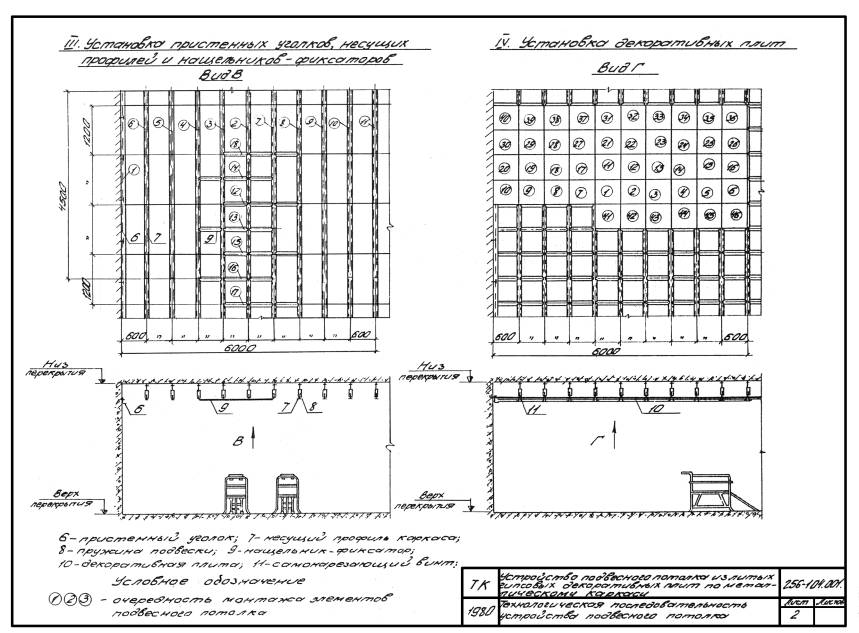 III. Установка пристенных уголков, несущих
профилей и нащельников-фиксаторов
Вид В
IV. Установка декоративных плит
Вид Г
6 5 4 3 2 7 8 9 10 11
1
1200
4500
1200
6 7 9
600 " " " " " " " " 600
6000
40 39 38 37 31 32 33 34 35 36
30 29 28 27 21 22 23 24 25 26
20 19 18 17 11 12 13 14 15 16
10 9 8 7 1 2 3 4 5 6
41 42 43 44 45 46
600 " " " " " " " " 600
6000
Низ
перекрытия
6 9 7 8
В
Верх
перекрытия
Низ
перекрытия
11 10
Г
Верх
перекрытия
6-пристенный уголок; 7-несущий профиль каркаса;
8-пружина подвески; 9-нащельник-фиксатор;
10-декоративная плита; 11-самонарезающий винт;
Условное обозначение
1 2 3 - очередность монтажа элементов
подвесного потолка
ТК
Устройство подвесного потолка из литых
гипсовых декоративных плит по метал-
лическому каркасу
256-1.04.001.
1980
Технологическая последовательность
устройства подвесного потолка
Лист Листов
2